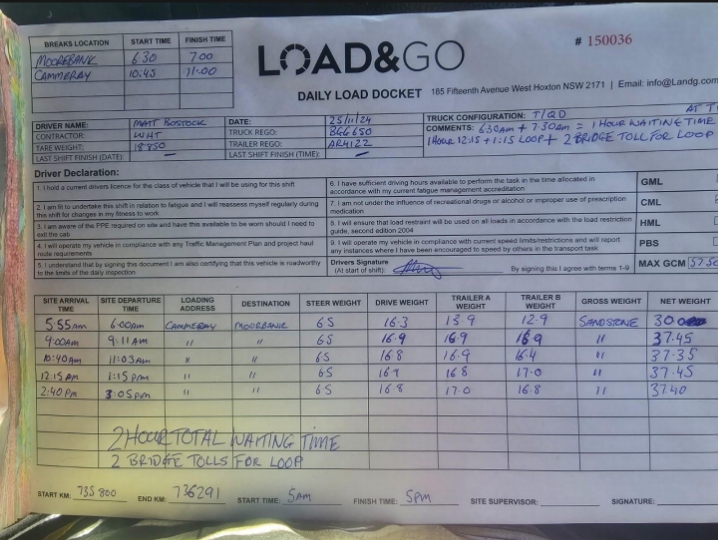 BREAKS LOCATION START TIME FINISH TIME
MOOREBANK 6 30 7 00
CAMMERAY 10.45 11.00
LOAD&GO
# 150036
DAILY LOAD DOCKET 185 Fifteenth Avenue West Hoxton NSW 2171 | Email: info@Landg.com
DRIVER NAME: MATT BOSTOCK DATE: 25/11/24 TRUCK CONFIGURATION: T/QD
CONTRACTOR: WHT TRUCK REGO: COMMENTS: 6:30am + 7:30am = 1 HOUR WAITING TIME AT
TARE WEIGHT: 18 850 TRAILER REGO: 1 Hour 12:15 + 1:15 LOOP + 2 BRIDGE TOLL FOR LOOP
LAST SHIFT FINISH (DATE): — LAST SHIFT FINISH (TIME): —
Driver Declaration:
1. I hold a current drivers licence for the class of vehicle that I will be using for this shift
2. I am fit to undertake this shift in relation to fatigue and I will reassess myself regularly during this shift for changes in my fitness to work
3. I am aware of the PPE required on site and have this available to be worn should I need to exit the cab
4. I will operate my vehicle in compliance with any Traffic Management Plan and project haul route requirements
5. I understand that by signing this document I am also certifying that this vehicle is roadworthy to the limits of the daily inspection
6. I have sufficient driving hours available to perform the task in the time allocated in accordance with my current fatigue management accreditation
7. I am not under the influence of recreational drugs or alcohol or improper use of prescription medication
8. I will ensure that load restraint will be used on all loads in accordance with the load restriction guide, second edition 2004
9. I will operate my vehicle in compliance with current speed limits/restrictions and will report any instances where I have been encouraged to speed by others in the transport task
Drivers Signature
(At start of shift): By signing this I agree with terms 1-9
GML
CML
HML
PBS
MAX GCM 57.50
SITE ARRIVAL TIME SITE DEPARTURE TIME LOADING ADDRESS DESTINATION STEER WEIGHT DRIVE WEIGHT TRAILER A WEIGHT TRAILER B WEIGHT GROSS WEIGHT NET WEIGHT
5:55am 6:00am CAMMERAY MOOREBANK 6.5 16.3 13.9 12.9 SANDSTONE 30
9:00AM 9:11AM " " 6.5 16.9 16.9 16.9 " 37.45
10:40AM 11:03AM " " 6.5 16.8 16.9 16.4 " 37.35
12:15pm 1:15pm " " 6.5 16.9 16.8 17.0 " 37.45
2:40pm 3:05pm " " 6.5 16.8 17.0 16.8 " 37.40
2 HOUR TOTAL WAITING TIME
2 BRIDGE TOLLS FOR LOOP
START KM: 735 800 END KM: 736291 START TIME: 5am FINISH TIME: 5pm SITE SUPERVISOR: SIGNATURE: